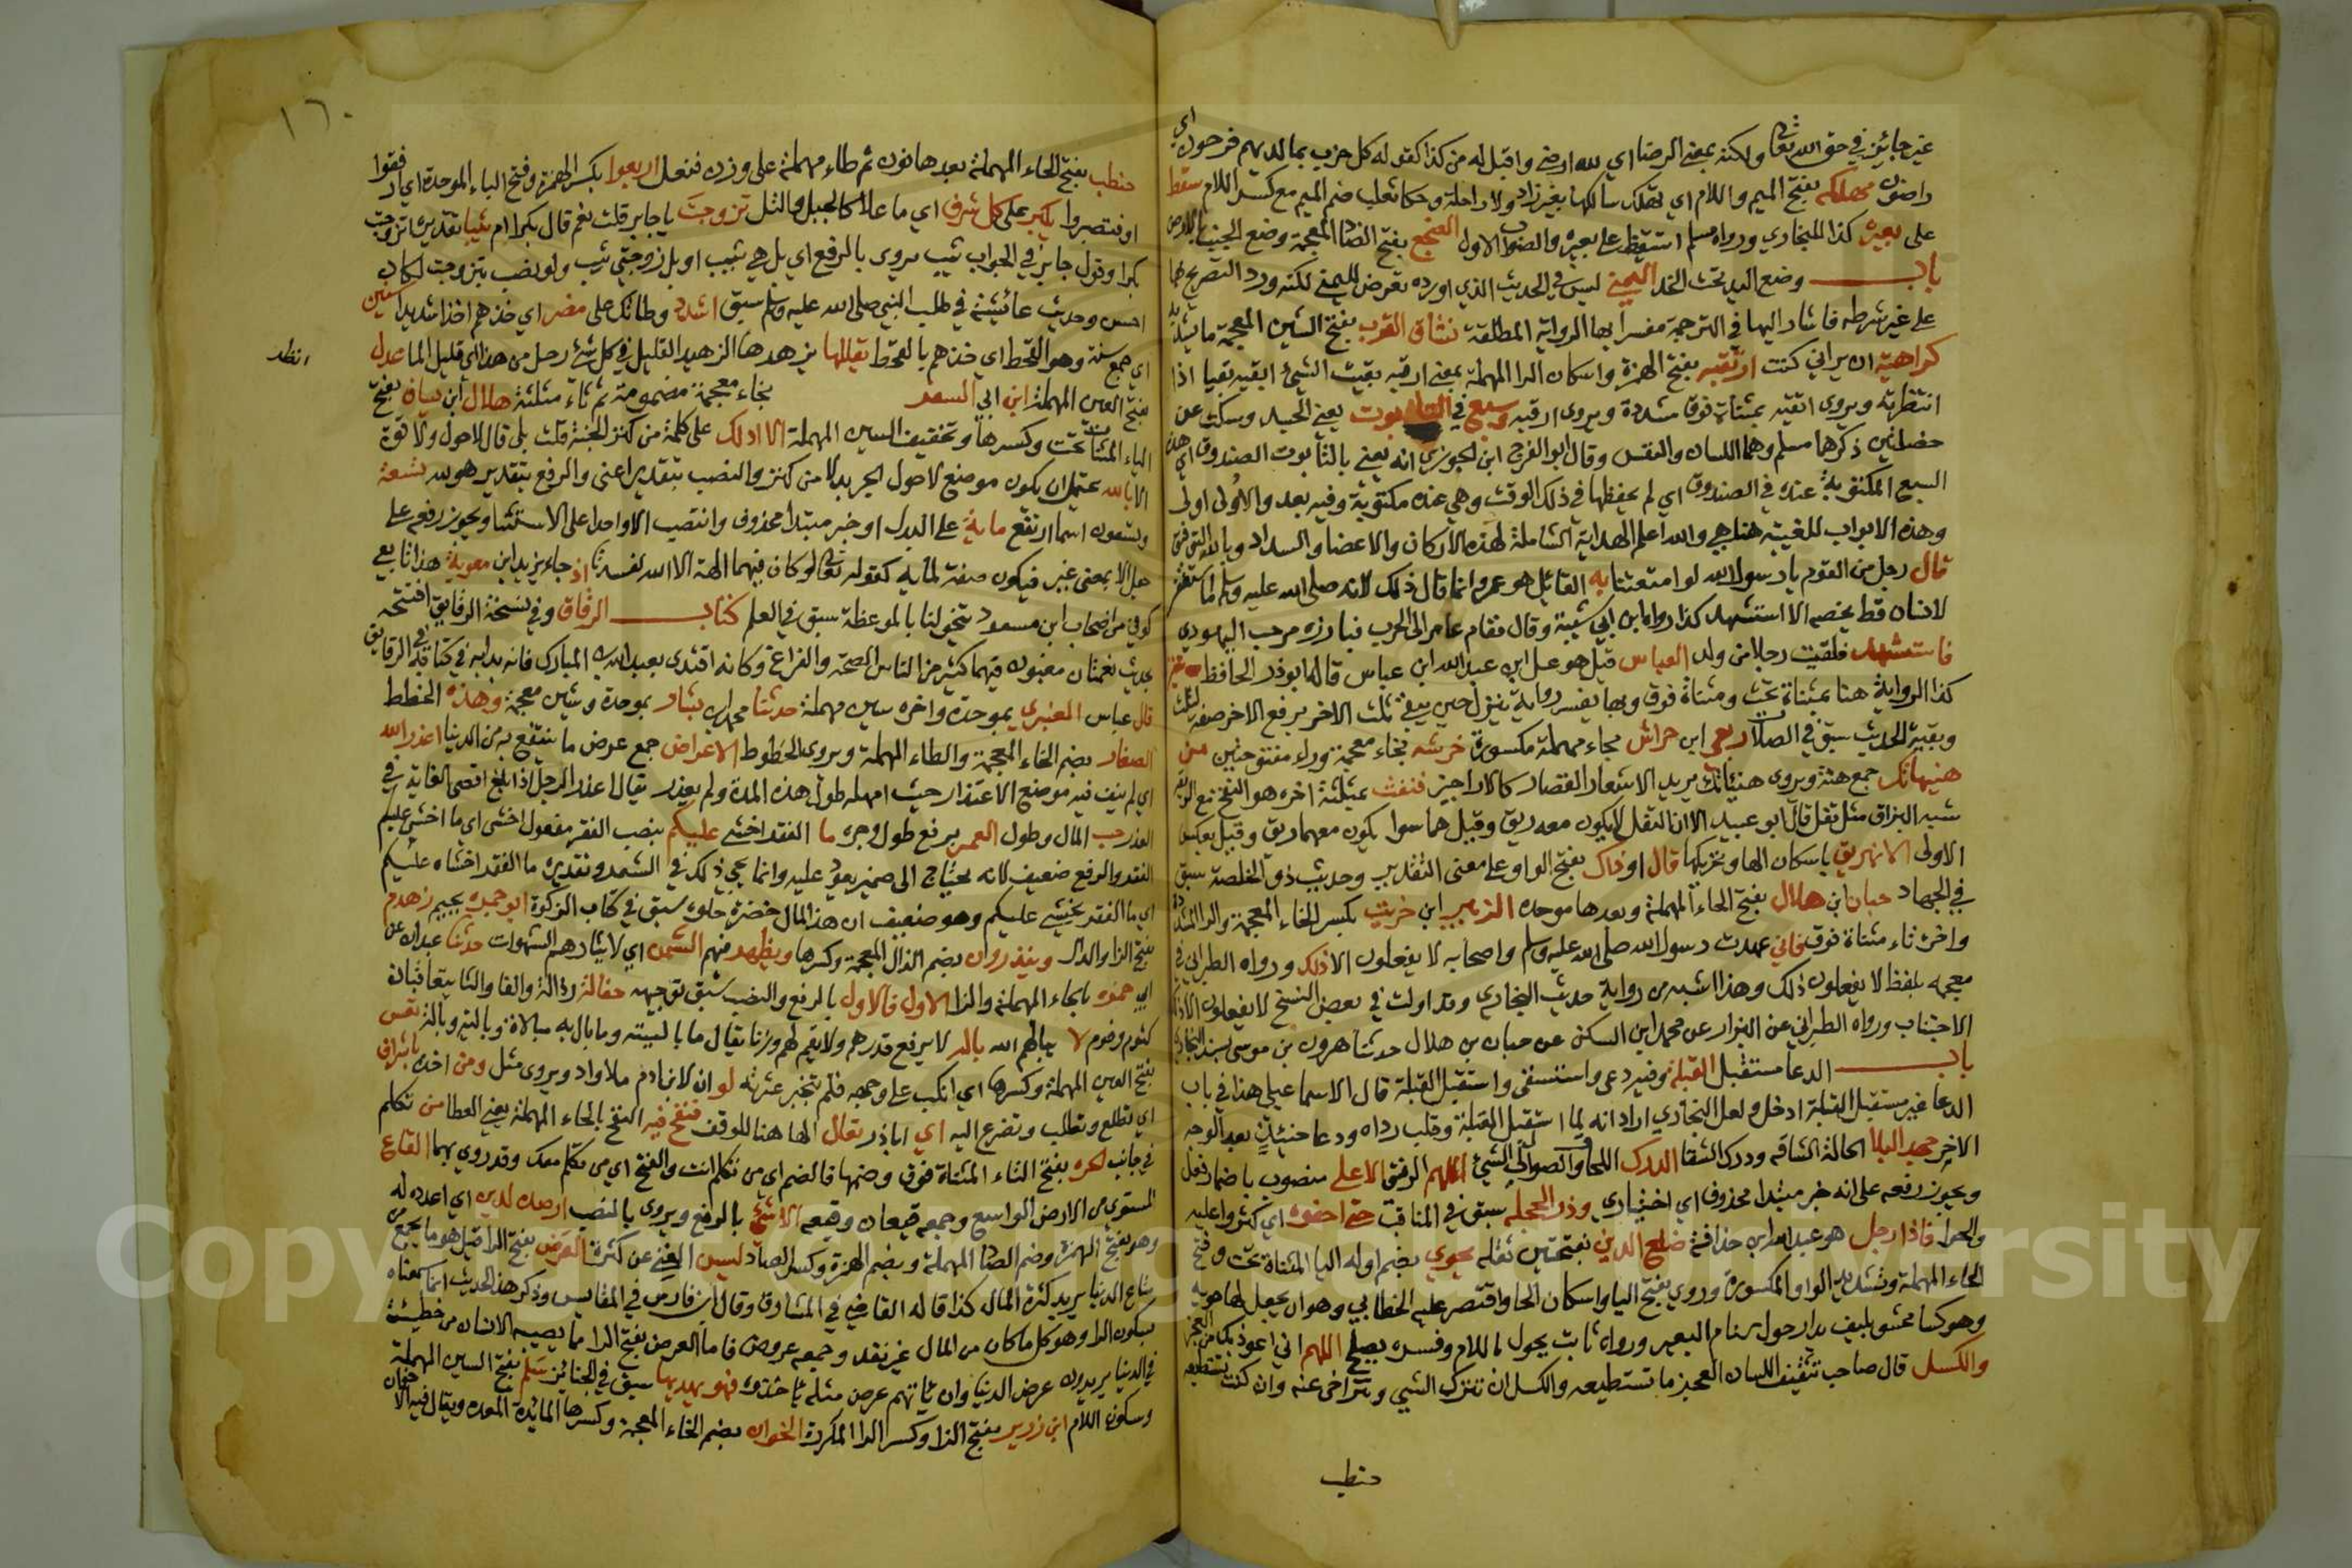 غير جائز في حق الله تعالى ولكنه بمعنى الرضا اي لله ارضى واقبل له من كذا كقوله كل حزب بما لديهم فرحون اي
راضون مهلكه بفتح الميم واللام اي تهلك سالكها بغير زاد ولا راحلة وحكا ثعلب ضم الميم مع كسر اللام سقط
على بعيره كذا للبخاري ورواه مسلم استيقظ على بعيره والصواب الاول الضجع بفتح الضاد المعجمة وضع الجنب بالارض
باب وضع اليد تحت الخد اليمنى ليس في الحديث الذي اورده تعرض لليمنى لكنه ورد التصريح بها
على غير شرطه فاشار اليها في الترجمة مفسرا بها الرواية المطلقة شناق القرب بفتح الشين المعجمة ما يشد به
كراهية ان يراني كنت ارتقبه بفتح الهمزة واسكان الرا المهملة بمعنى ارقبه بقيت الشيء ابقيه بقيا اذا
انتظرته ويروى اتقيه بمثناة فوق مشددة ويروى ارقبه وسبع في التابوت يعني الجسد وسكت عن
خصلتين ذكرها مسلم وهما اللسان والنفس وقال ابو الفرج ابن الجوزي انه يعني بالتابوت الصندوق اي هذه
السبع المكتوبة عنده في الصندوق اي لم يحفظها في ذلك الوقت وهي عنده مكتوبة وفيه بعد والاولى اولى
قال رجل من القوم يا رسول الله لو امتعتنا به القائل هو عمر وانما قال ذلك لانه صلى الله عليه وسلم ما استغفر
لانسان قط يخصه الا استشهد كذا رواه ابن ابي شيبة وقال فقام عامر الى الحرب فبارزه مرحب اليهودي
فاستشهد فلقيت رجلا من ولد العباس قيل هو علي ابن عبد الله ابن عباس قاله ابو ذر الحافظ
كذا الرواية هنا بمثناة تحت ومثناة فوق وبها يفسر رواية ينزل حين يبقى ثلث الاخر برفع الاخر صفة لثلث
وبقية الحديث سبق في الصلاة ربعي ابن حراش بحاء مهملة مكسورة خرشه بخاء معجمة وراء مفتوحتين من
هنيهاتك جمع هنة ويروى هنياتك يريد الاشعار القصار كالاراجيز فنفث بمثلثة اخره هو النفخ مع الريق
شبه البزاق مثل تفل قال ابو عبيد الا ان التفل لا يكون معه ريق وقيل هما سوا يكون معهما ريق وقيل بعكس
الاولى الا نهريق باسكان الها وتحريكها قال او ذاك بفتح الواو على معنى التقدير وحديث ذو الخلصة سبق
في الجهاد حبان ابن هلال بفتح الحاء المهملة وبعدها موحدة الزبير ابن خريت بكسر الخاء المعجمة والرا المشددة
واخره تاء مثناة فوق فاني عهدت رسول الله صلى الله عليه وسلم واصحابه لا يفعلون الا ذلك ورواه الطبراني في
معجمه بلفظ لا يفعلون ذلك وهذا اشبه من رواية حديث البخاري وقد اولت في بعض النسخ لا يفعلون الا ذلك
الاجتناب ورواه الطبراني عن البزار عن محمد ابن السكن عن حبان بن هلال حدثنا هرون بن موسى بسند البخاري
باب الدعا مستقبل القبلة وفيه دعى واستسقى واستقبل القبلة قال الاسماعيلي هذا في باب
الدعا غير مستقبل القبلة ادخل ولعل البخاري اراد انه لما استقبل القبلة وقلب رداه ودعا حينئذ بعد الوجه
الاخر جهد البلا الحالة الشاقه ودرك الشقا الدرك اللحاق والوصول الى الشيء اللهم الرفيق الاعلى منصوب باضمار فعل
ويجوز رفعه على انه خبر مبتدا محذوف اي اختياري وذر الحجلة سبق في المناقب حتى احفوه اي اكثروا عليه
فاذا رجل هو عبد الله ابن حذافة ضلع الدين بفتحتين ثقله يحوي بضم اوله اليا المثناة تحت وفتح
الحاء المهملة وتشديد الواو المكسورة وروي بفتح اليا واسكان الحا واقتصر عليه الخطابي وهو ان يجعل لها حوية
وهو كسا محشو بليف يدار حول سنام البعير ورواه ثابت يحول باللام وفسره يصلح اللهم اني اعوذ بك من العجز
والكسل قال صاحب تثقيف اللسان العجز ما تستطيعه والكسل ان تترك الشيء وتتراخى عنه وان كنت تستطيعه
حنطب
١٦٠
حنطب بفتح الحاء المهملة بعدها نون ثم طاء مهملة على وزن فنعل اربعوا بكسر الهمزة وفتح الباء الموحدة اي ارفقوا
او انتصروا يكبر على كل شرف اي ما علا كالجبل والتل تزوجت يا جابر قلت نعم قال بكرا ام ثيبا تقديره اتزوجت
بكرا وقول جابر في الجواب ثيب يروى بالرفع اي بل هي ثيب او بل زوجتي ثيب ولو نصب بتزوجت لكان
احسن وحديث عائشة في طلب النبي صلى الله عليه وسلم سبق اشدد وطاتك على مضر اي خذهم اخذا شديدا سنين
اي جمع سنة وهو القحط اي خذهم بالقحط يقللها يزهدها الزهيد القليل في كل شيء رجل من هذا اي قليل الما عدل
بفتح العين المهملة ابن ابي السفر بخاء معجمة مضمومة ثم ثاء مثلثة هلال ابن يساف بفتح
الياء المثناة تحت وكسرها وتخفيف السين المهملة الا ادلك على كلمة من كنز الجنة قلت بلى قال لا حول ولا قوة
الا بالله يحتمل ان يكون موضع لا حول الجر بدلا من كنز والنصب بتقدير اعني والرفع بتقدير هو لله تسعة
وتسعون اسما ارتفع ماية على البدل او خبر مبتدا محذوف وانتصب الا واحدا على الاستثنا ويجوز رفعه على
جعل الا بمعنى غير فيكون صفة لماية كقوله تعالى لو كان فيهما الهة الا الله لفسدتا اذ جاء يزيد ابن معوية هذا تابعي
كوفي من اصحاب ابن مسعود يتخولنا بالموعظة سبق في العلم كتاب الرقاق وفي نسخة الرقايق افتتحه
بحديث نعمتان مغبون فيهما كثير من الناس الصحة والفراغ وكانه اقتدى بعبد الله بن المبارك فانه بدا به في كتابه في الرقايق
قال عباس العنبري بموحدة واخره سين مهملة حدثنا محمد بن بشار بموحدة وشين معجمة وهذه الخطط
الصغار بضم الخاء المعجمة والطاء المهملة ويروى الخطوط الاعراض جمع عرض ما ينتفع به من الدنيا اعذر الله
اي لم يبق فيه موضع الاعتذار حيث امهله طول هذه المدة ولم يعتذر يقال اعذر الرجل اذا بلغ اقصى الغاية في
العذر حب المال وطول العمر برفع طول وجره ما الفقر اخشى عليكم بنصب الفقر مفعول اخشى اي ما اخشى عليكم
الفقر والرفع ضعيف لانه يحتاج الى ضمير يعود عليه وانما يجي ذلك في الشعر وتقديره ما الفقر اخشاه عليكم
اي ما الفقر يخشى عليكم وهو ضعيف ان هذا المال خضرة حلوة سبق في كتاب الزكوة ابو جمرة بجيم زهدم
بفتح الزا والدال وينذرون بضم الذال المعجمة وكسرها ويظهر فيهم السمن اي لايثارهم الشهوات حدثنا عبدان عن
ابي حمزه بالحاء المهملة والزا الاول فالاول بالرفع والنصب سبق توجيهه حفالة رذالة والفا والثا يتعاقبان
كثوم وفوم لا يبالهم الله بالة لا يرفع قدرهم ولا يقيم لهم وزنا يقال ما باليته وما بال به مبالاة وبالية وبالة تعس
بفتح العين المهملة وكسرها اي انكب على وجهه فلم تنجبر عثرته لو ان لابن ادم ملا واد ويروى مثل ومن اخذه باشراف
اي تطلع وتطلب وتضرع اليه اي اباذر تعال الها هنا للوقف فنفح فيه النفح بالحاء المهملة يعني العطا من تكلم
في جانب الحرة بفتح التاء المثناة فوق وضمها فالضم اي من تكلم انت والفتح اي من تكلم معك وقد روي بهما القاع
المستوي من الارض الواسع وجمعه قيعان وقيعه الا شيء بالرفع ويروى بالنصب ارصده لدين اي اعده له
وهو بفتح الهمزة وضم الصاد المهملة وبضم الهمزة وكسر الصاد ليس الغنى عن كثرة العرض بفتح الرا قيل هو ما يجمع من
متاع الدنيا يريد كثرة المال كذا قاله القاضي في المشارق وقال ابن فارس في المقايس وذكر هذا الحديث انما سمعناه
بسكون الرا وهو كل ما كان من المال غير نقد وجمعه عروض فاما العرض بفتح الرا فما يصيبه الانسان من حظه
في الدنيا يريدون عرض الدنيا وان ياتهم عرض مثله ياخذوه فهو يهديها سبق في الجنائز سلم بفتح السين المهملة
وسكون اللام ابن زرير بفتح الزا وكسر الرا المكررة الخوان بضم الخاء المعجمة وكسرها المائدة المعدة ويقال فيه الاخوان
انظر
Copy University